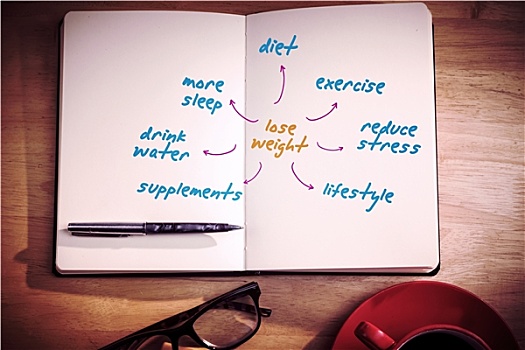 diet
more
sleep
exercise
drink
water
lose
weight
reduce
stress
supplements
lifestyle